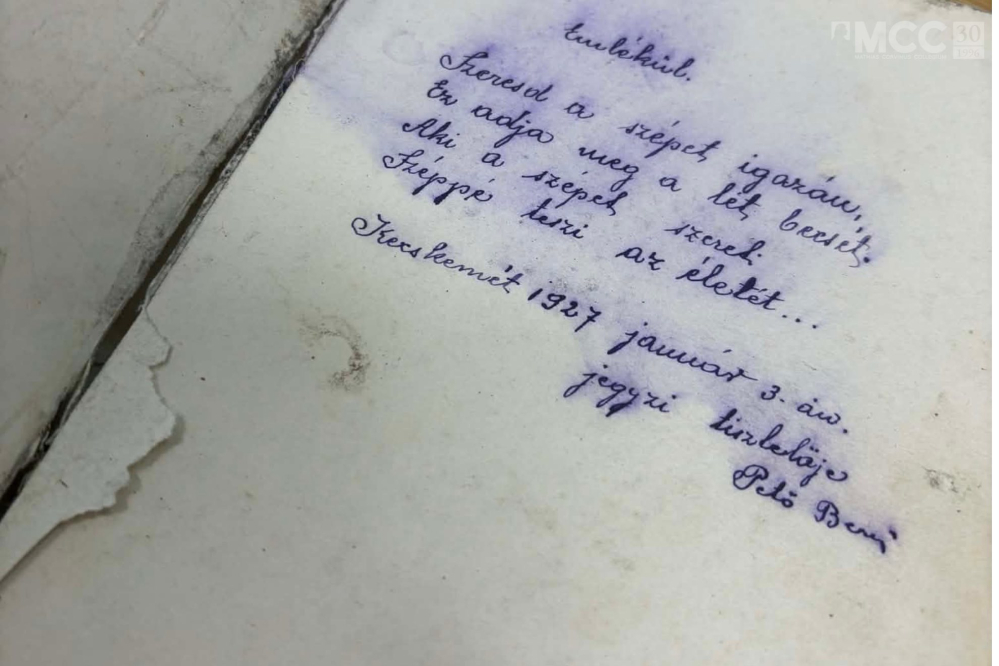 MCC 30
Emlékül.
Szeresd a szépet igazán,
Ez adja meg a lét becsét.
Aki a szépet szereti
Széppé teszi az életét...
Kecskemét 1927 január 3.-án.
jegyzi tisztelője
Pető